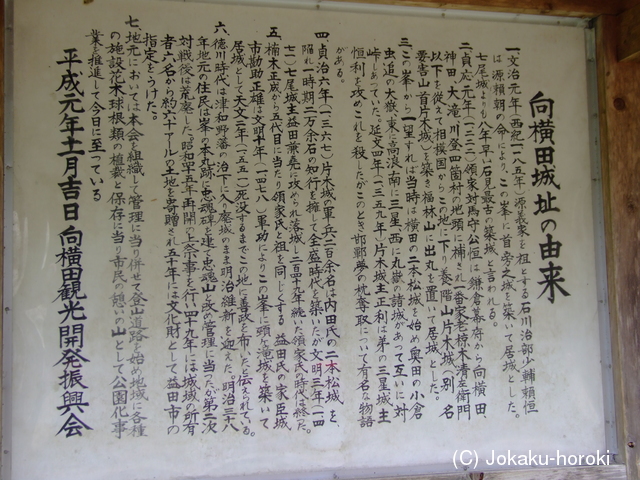 向横田城址の由来
一、文治元年(西紀一一八五年)源義家を祖とする石川治部少輔頼恒
は源頼朝の命により、この峯に首旁之城を築いて居城とした。
七尾城よりも八年早い石見最古の築城と言われる。
二、貞応元年(一二二二)領家対馬守公恒は鎌倉幕府から向横田、
神田、大滝、川登四箇村の地頭に補され一番家老椋木清左衛門
以下を従えて相模国からこの地に下り養階山片木城(別名
要害山首片大城)を築き福林山に出丸を置いて居城とした。
三、この峯から一望すれば当時は横田の二本松城を始め奥田の小倉
虫追の大嶽、東に高浪、南に三星、西に及嶽の諸城があって互いに対
峙しあっていた。延文四年(一三五九年)片木城主正利は弟の三星城主
恒利を攻めこれを殺したがこのとき邯鄲夢の枕奪取について有名な物語
がある。
四、貞治六年(一三六七)片木城の軍兵二百余名は内田氏の二本松城を
陥れ一時期二万余石の知行を擁して全盛時代を築いたが文明三年(一四
七一)七尾城主益田兼堯に攻められ落城、二百四十九年続いた領家氏の時代は終った。
五、楠木正成から五代目に当たり領家氏と祖を同じくする 益田氏の家臣城
市勘助正雄は文明十年(一四七八)軍功によりこの峯に頭ヶ滝城を築いて
居城として天文二年(一五五一)死没するまでこの地に善政を布いたと伝えられている。
六、徳川時代は津和野藩の治下に入り廃城のまま明治維新を迎えた。明治三十八
年地元の住民は峯の本丸跡に忠魂碑を建て忠魂山と改め管理に当ったが第二次
対戦後は荒廃した。昭和四十五年再開の上祭事を行い四十九年には城域の所有
者六名から約六十アールの土地を寄贈され五十年には文化財として益田市の
指定をうけた。
七、地元においては本会を組織して管理に当り併せて登山道路を始め地域に各種
の施設花木球根類の植栽と保存に当り市民の憩いの山として公園化事
業を推進して今日に至っている
平成元年十一月吉日 向横田観光開発振興会
(C) Jokaku-horoki